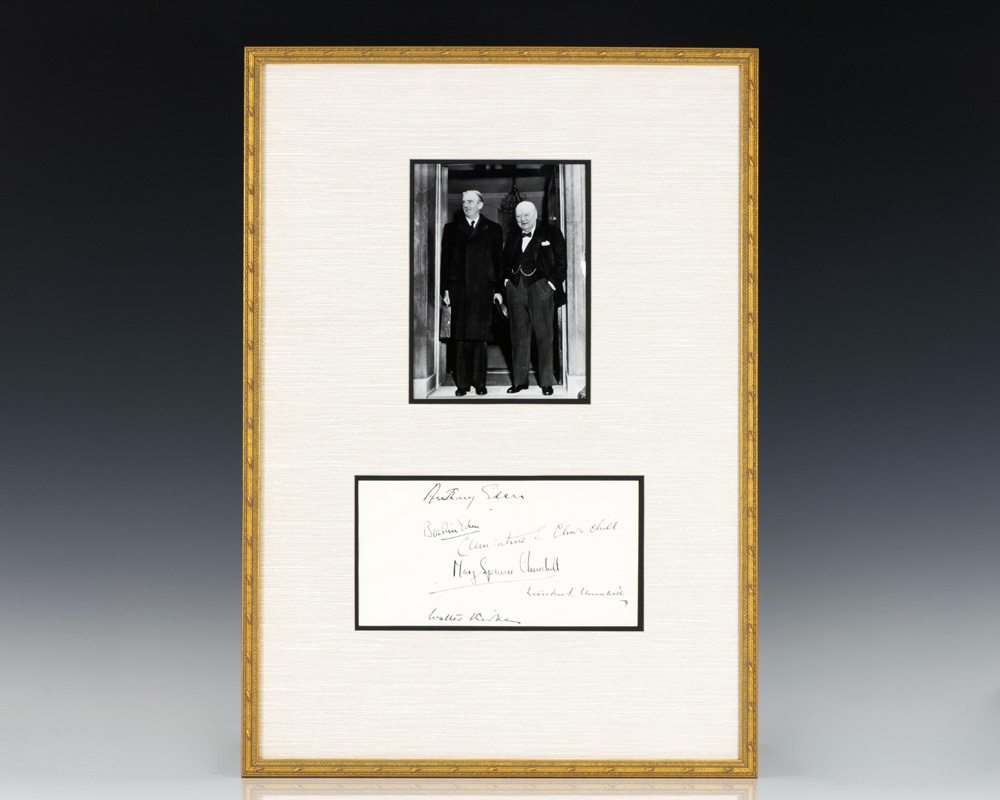 Anthony Eden
Beatrice Eden
Clementine S. Churchill
Mary Spencer Churchill
Winston S. Churchill
Walter